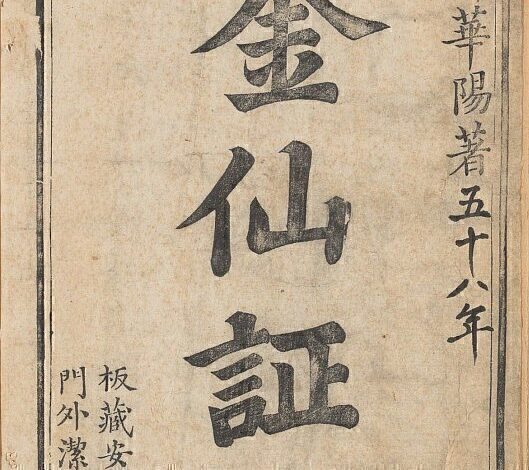 華陽著五十八年
金仙証
板藏安
門外潔